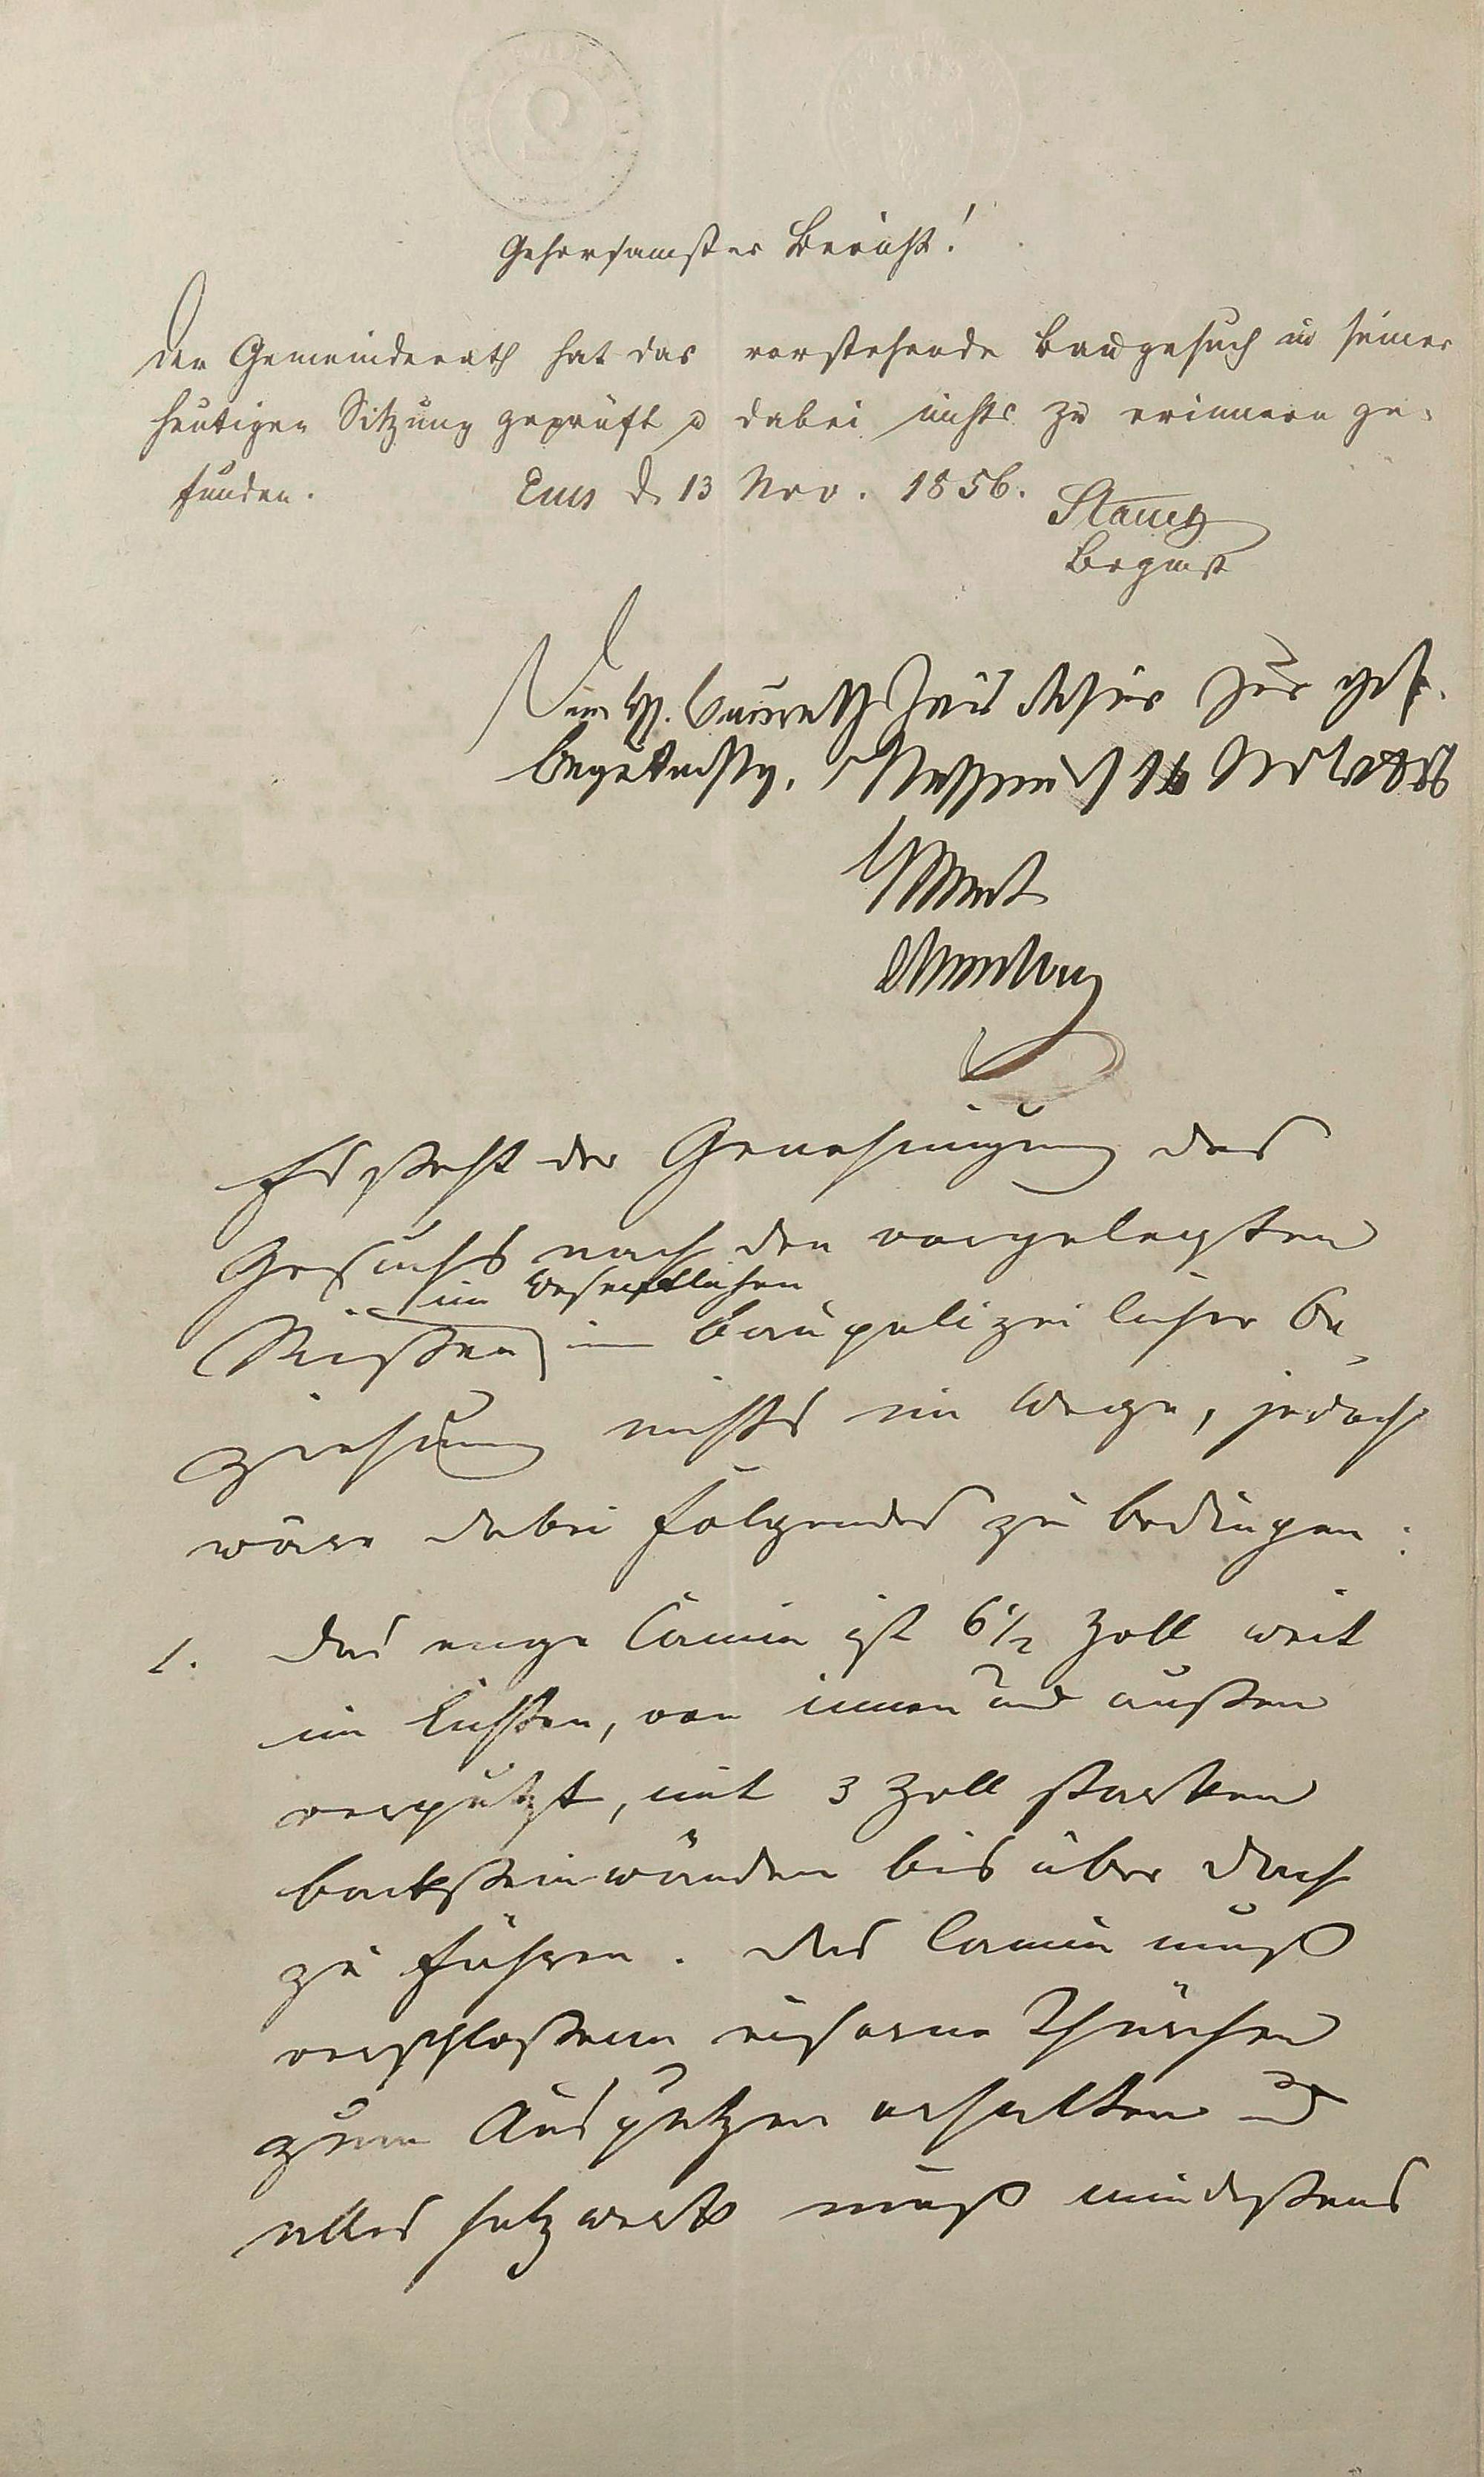 Gehorsamster Bericht!
Der Gemeinderath hat das vorstehende Baugesuch in seiner
heutigen Sitzung geprüft u dabei nichts zu erinnern ge-
funden. Ems d. 13 Nov. 1856.
Brgmst
Dem H. Baurath zur gef.
Begutachtg. Nassau d 16 Nov
Amt
Es steht der Genehmigung des
Gesuchs nach den vorgelegten
im Wesentlichen
Rissen in baupolizeilicher Be-
ziehung nichts im Wege, jedoch
wäre dabei Folgendes zu bedingen:
1. Das enge Camin ist 6 1/2 Zoll weit
im Lichten, von innen und außen
verputzt, mit 3 Zoll starken
Backsteinwänden bis über Dach
zu führen. Das Camin muß
verschlossene eiserne Thürchen
zum Ausputzen erhalten und
alles Holzwerk muß mindestens